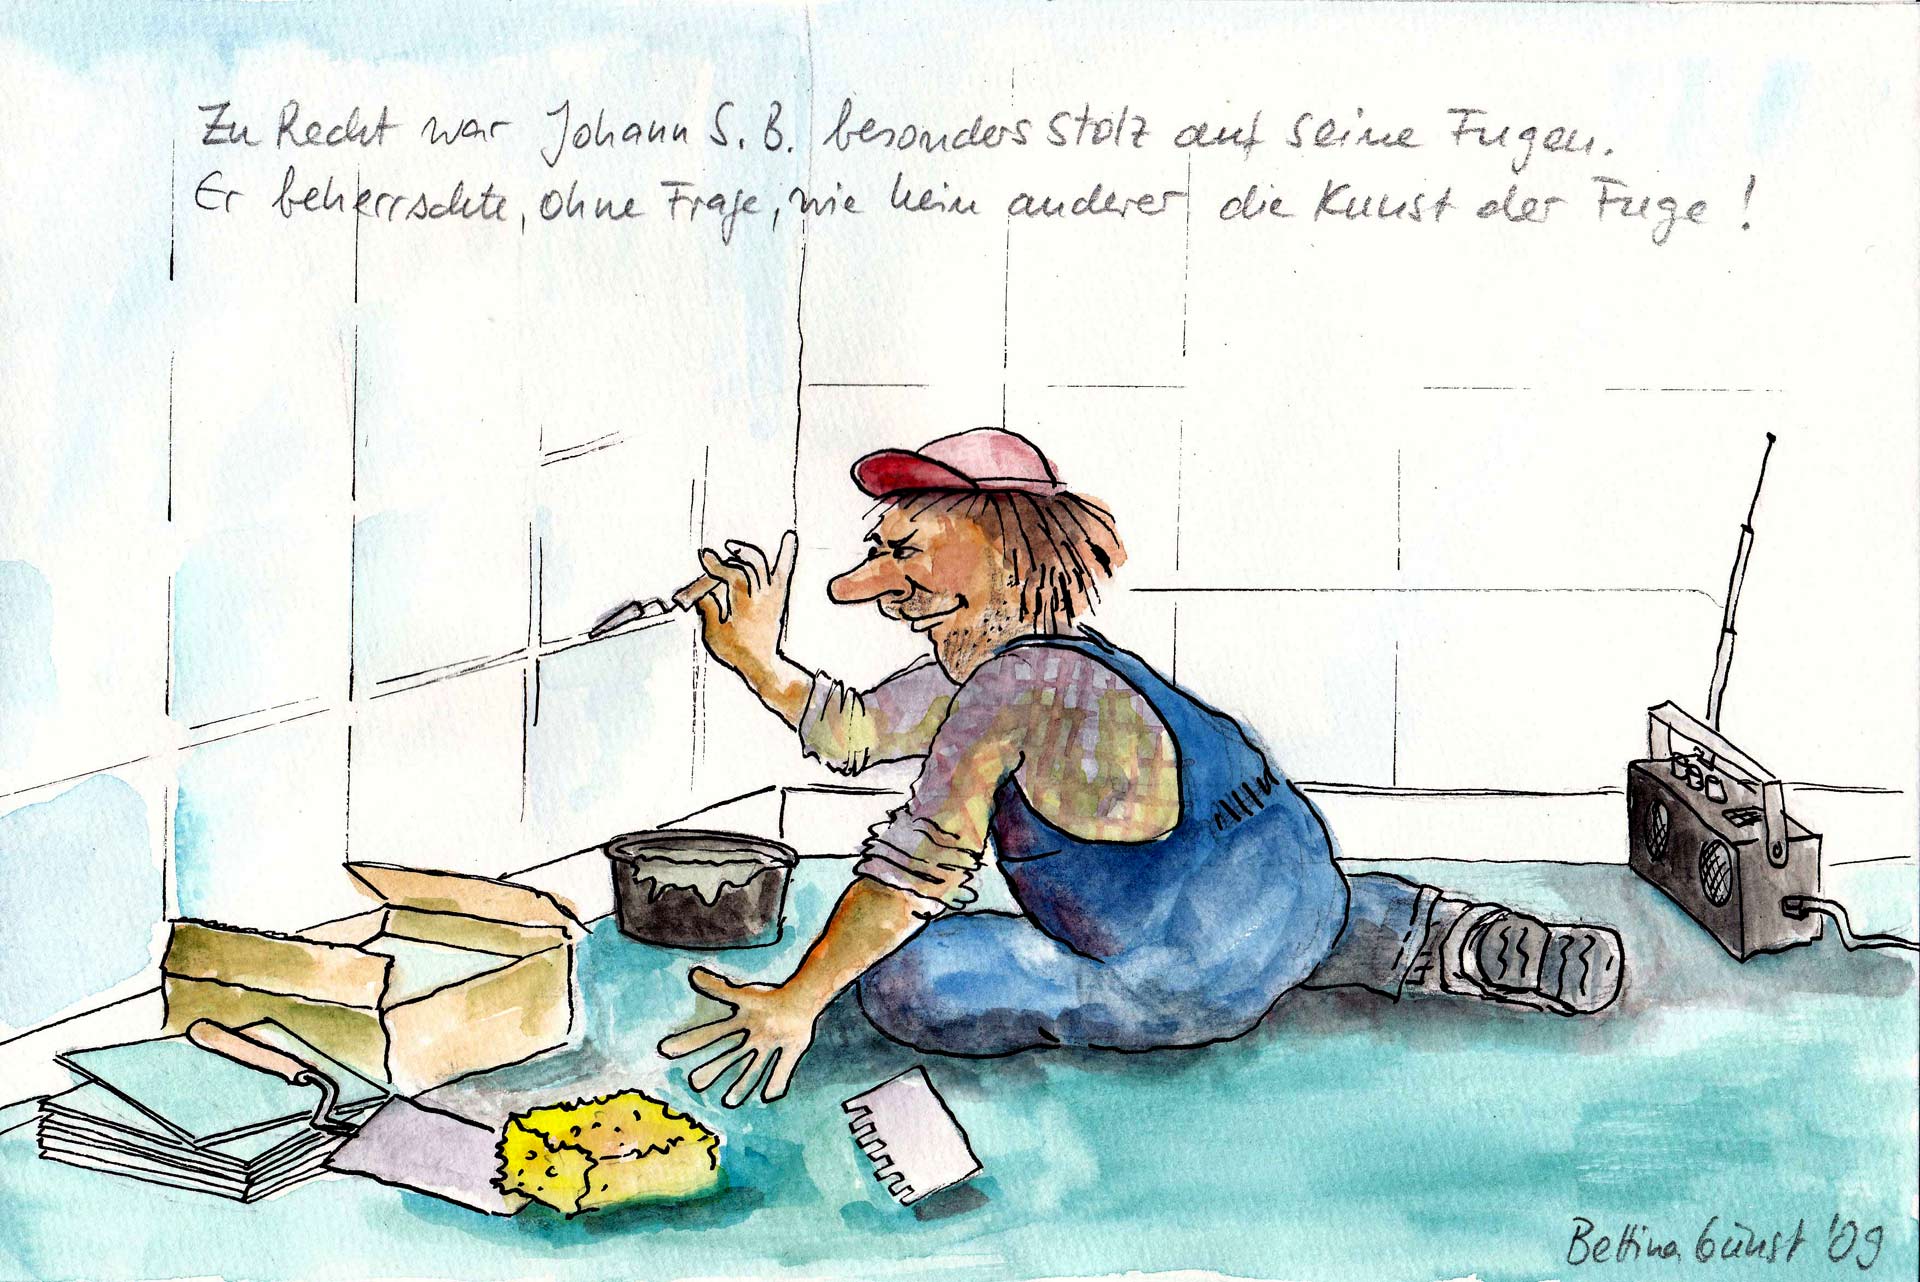 Zu Recht war Johann S. B. besonders stolz auf seine Fugen.
Er beherrschte, ohne Frage, wie kein anderer die Kunst der Fuge!
Bettina Günst '09